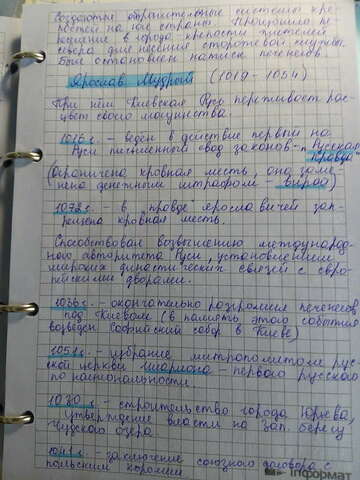 Создаются оборонительные системы кре-
постей на юге страны. Произошло пе-
реселение в города-крепости жителей
севера для несения сторожевой службы.
Был остановлен натиск печенегов.
Ярослав Мудрый (1019 - 1054)
При нём Киевская Русь переживает рас-
цвет своего могущества.
1016 г. - введен в действие первый на
Руси письменный свод законов - "Русская
Правда"
(ограничена кровная месть, она заме-
нена денежным штрафом - вирой)
1072 г. - в "правде" Ярославичей зап-
рещена кровная месть.
Способствовал возвышению международ-
ного авторитета Руси, установлением
широких династических связей с евро-
пейскими дворами.
1036 г. - окончательно разгромил печенегов
под Киевом (в память этого события
возведен Софийский собор в Киеве)
1051 г. - избрание митрополитом рус-
ской церкви Илариона - первого русского
по национальности.
1030 г. - строительство города Юрьева,
утверждение власти на Зап. берегу
Чудского озера
1041 г. - заключение союзного договора с
польским королем
Информат